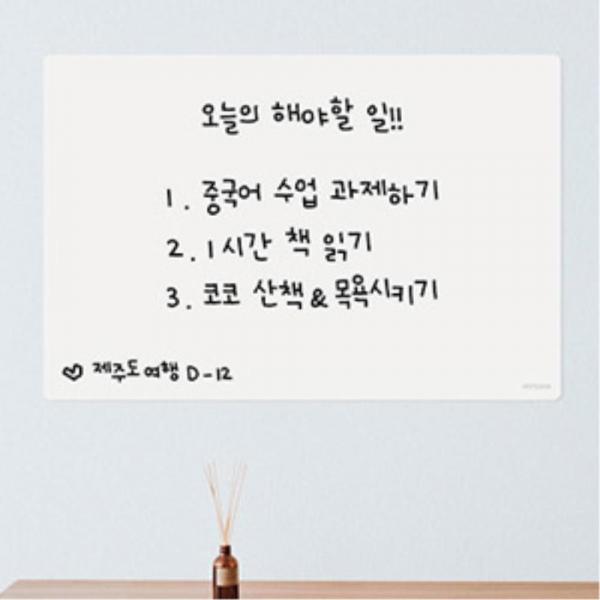 오늘의 해야할 일!!
1. 중국어 수업 과제하기
2. 1시간 책 읽기
3. 코코 산책 & 목욕시키기
♡ 제주도 여행 D-12